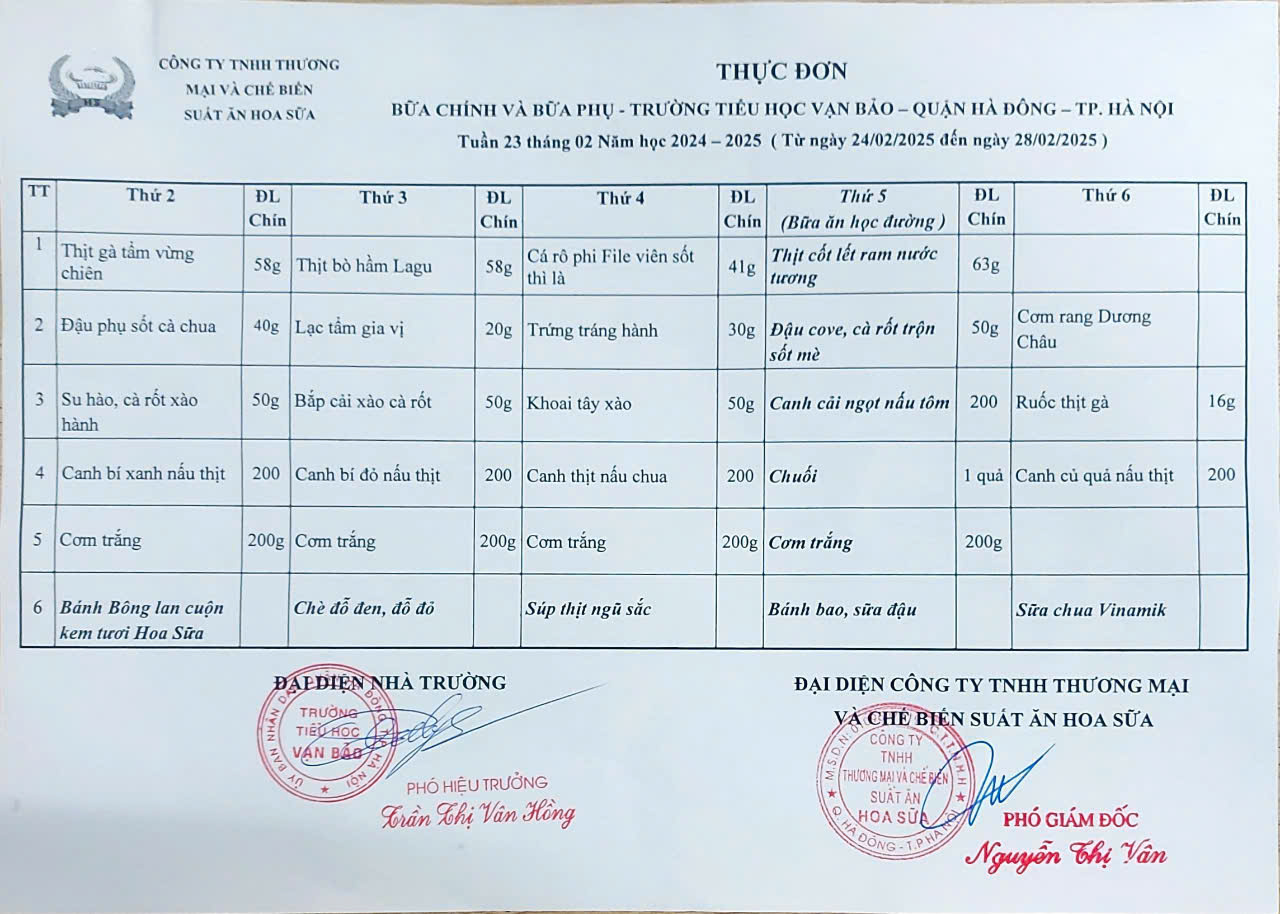 CÔNG TY TNHH THƯƠNG
MẠI VÀ CHẾ BIẾN
SUẤT ĂN HOA SỮA
THỰC ĐƠN
BỮA CHÍNH VÀ BỮA PHỤ - TRƯỜNG TIỂU HỌC VẠN BẢO – QUẬN HÀ ĐÔNG – TP. HÀ NỘI
Tuần 23 tháng 02 Năm học 2024 – 2025 ( Từ ngày 24/02/2025 đến ngày 28/02/2025 )
TT Thứ 2 ĐL Chín Thứ 3 ĐL Chín Thứ 4 ĐL Chín Thứ 5 (Bữa ăn học đường ) ĐL Chín Thứ 6 ĐL Chín
1 Thịt gà tẩm vừng chiên 58g Thịt bò hầm Lagu 58g Cá rô phi File viên sốt thì là 41g Thịt cốt lết ram nước tương 63g
2 Đậu phụ sốt cà chua 40g Lạc tẩm gia vị 20g Trứng tráng hành 30g Đậu cove, cà rốt trộn sốt mè 50g Cơm rang Dương Châu
3 Su hào, cà rốt xào hành 50g Bắp cải xào cà rốt 50g Khoai tây xào 50g Canh cải ngọt nấu tôm 200 Ruốc thịt gà 16g
4 Canh bí xanh nấu thịt 200 Canh bí đỏ nấu thịt 200 Canh thịt nấu chua 200 Chuối 1 quả Canh củ quả nấu thịt 200
5 Cơm trắng 200g Cơm trắng 200g Cơm trắng 200g Cơm trắng 200g
6 Bánh Bông lan cuộn kem tươi Hoa Sữa Chè đỗ đen, đỗ đỏ Súp thịt ngũ sắc Bánh bao, sữa đậu Sữa chua Vinamik
ĐẠI DIỆN NHÀ TRƯỜNG
TRƯỜNG
TIỂU HỌC
VẠN BẢO
PHÓ HIỆU TRƯỞNG
Trần Thị Vân Hồng
ĐẠI DIỆN CÔNG TY TNHH THƯƠNG MẠI
VÀ CHẾ BIẾN SUẤT ĂN HOA SỮA
CÔNG TY
TNHH
THƯƠNG MẠI VÀ CHẾ BIẾN
SUẤT ĂN
HOA SỮA
Q. HÀ ĐÔNG - T.P HÀ NỘI
PHÓ GIÁM ĐỐC
Nguyễn Thị Vân